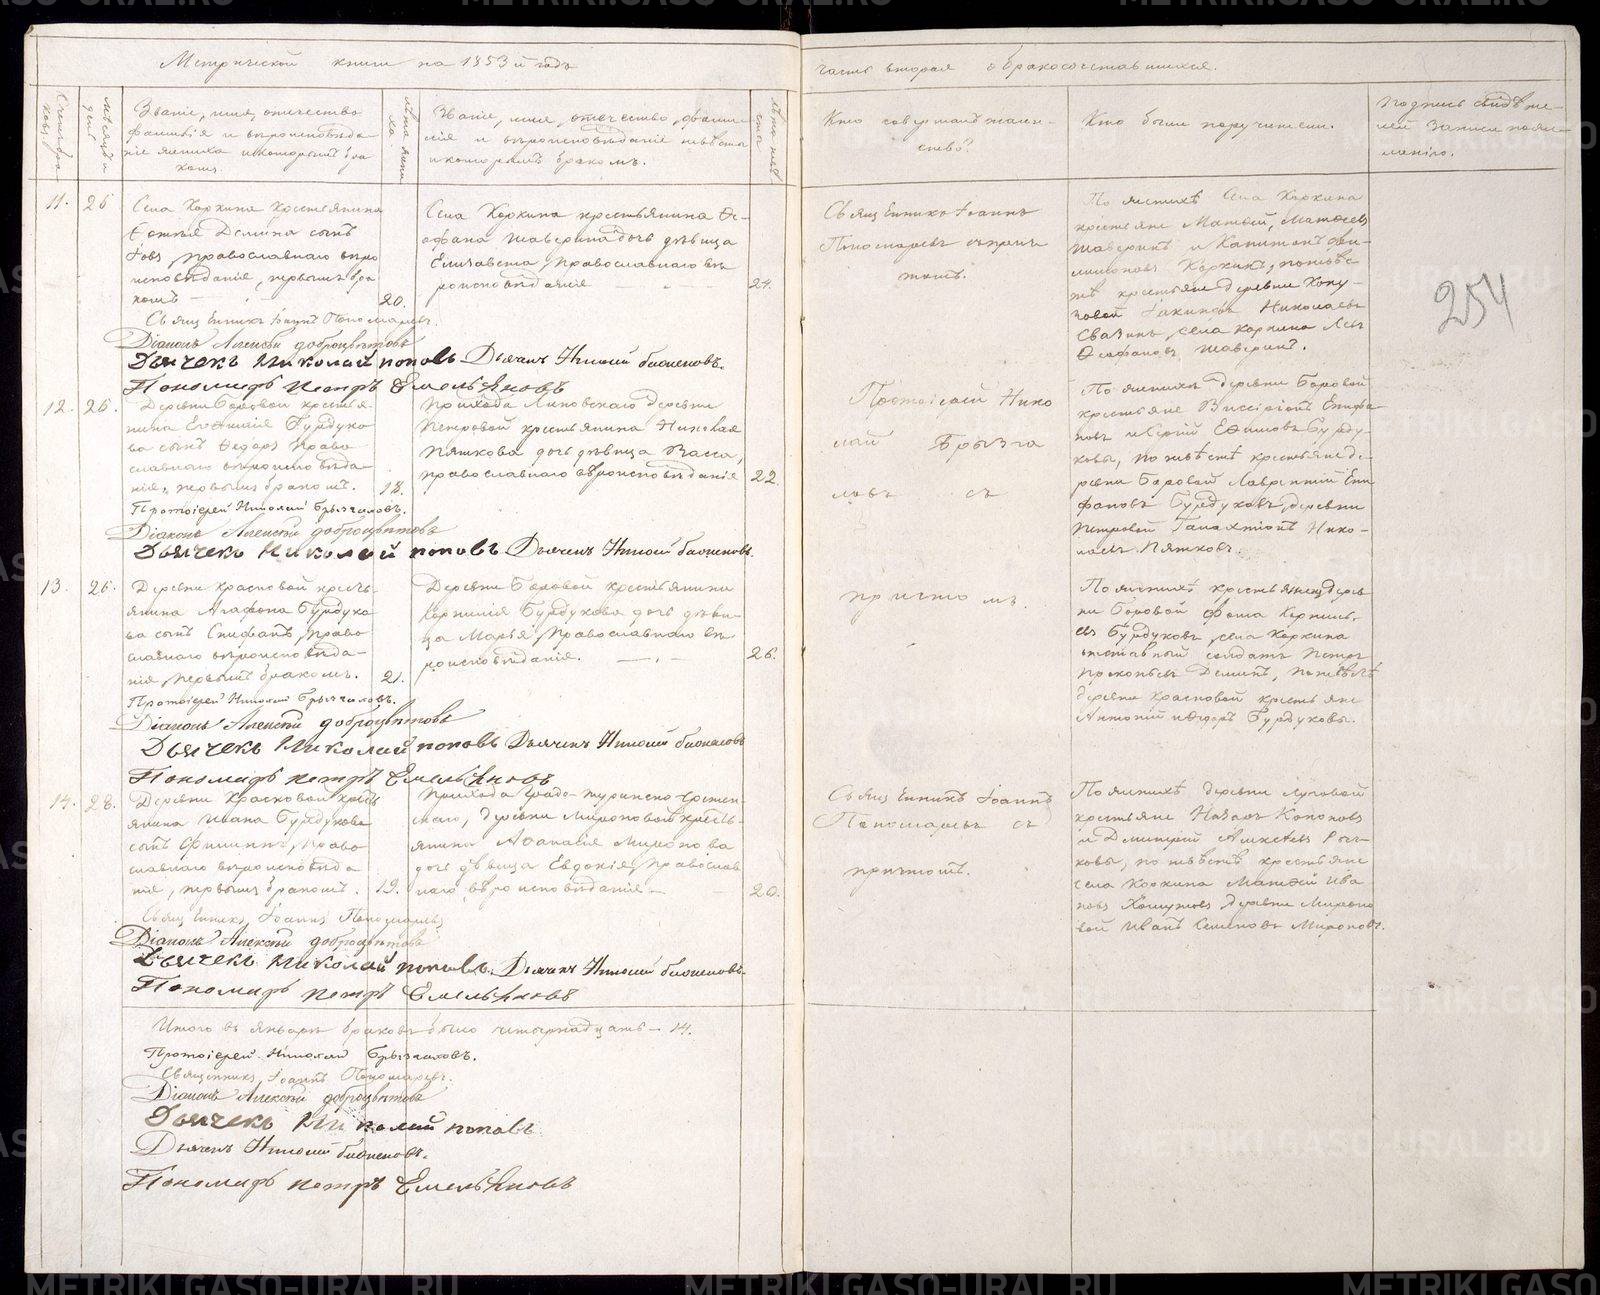 Метрической книги на 1853й годъ
часть вторая о бракосочетавшихся.
Счетъ браковъ
Мѣсяцъ и день
Званіе, имя, отчество
фамилія и вѣроисповѣда-
ніе жениха и которымъ бра
комъ.
Лѣта жениха.
Званіе, имя, отчество, фами-
лія и вѣроисповѣданіе невѣсты
и которымъ бракомъ.
Лѣта невѣсты
Кто совершалъ таин-
ство?
Кто были поручители.
Подпись свидѣте-
лей записи по же-
ланію.
11.
26
Села Коркина крестьянина
Фотѣя Демина сынъ
Іовъ, православнаго вѣро
исповѣданія, первымъ бра
комъ
20.
Села Коркина крестьянина Ѳе-
офана Шаверина дочь дѣвица
Елизавета, православнаго вѣ
роисповѣданія
24.
Священникъ Іоаннъ
Пономаревъ съ прич
томъ.
По женихѣ Села Коркина
крестьяне Матѳей, Матѳеевъ
Шаверинъ и Капитонъ
Коркинъ, по невѣс
тѣ крестьяне деревни
Іакинѳъ Николаевъ
села Коркина Левъ
Ѳеофановъ Шаверинъ.
254
Священникъ Іоаннъ Пономаревъ.
Діаконъ Алексѣй Доброцвѣтовъ
Дьячекъ Николай поповъ Дьячекъ Николай
Пономарь петръ Емельяновъ
12.
26.
Деревни Боровой крестья-
нина Евѳимія Бурдуко
ва сынъ Ѳедоръ право
славнаго вѣроисповѣда-
нія, первымъ бракомъ.
18.
Прихода Липовскаго деревни
Петровой крестьянина Николая
Пяткова дочь дѣвица Васса,
православнаго вѣроисповѣданія
22.
Протоіерей Нико
лай Брызга
ловъ съ
По женихѣ деревни Боровой
крестьяне Виссаріонъ Епифа-
новъ и Сергій Евѳимовъ Бурду-
ковы, по невѣстѣ крестьяне де-
ревни Боровой Лаврентій Епи
фановъ Бурдуковъ, деревни
Петровой Галактіонъ Нико-
лаевъ Пятковъ.
Протоіерей Николай Брызгаловъ.
Діаконъ Алексѣй Доброцвѣтовъ
Дьячекъ Николай поповъ Дьячекъ Николай
13.
26.
Деревни Красковой кресть-
янина Агафона Бурдуко
ва сынъ Епифанъ, право
славнаго вѣроисповѣда-
нія, первымъ бракомъ.
21.
Деревни Боровой крестьянина
Корнилія Бурдукова дочь дѣви-
ца Марья, православнаго вѣ
роисповѣданія.
26.
причтомъ.
По женихѣ крестьянинъ дерев
ни Боровой Фома Корнильевъ
Бурдуковъ, села Коркина
отставный солдатъ Петръ
Прокопьевъ Деминъ, по невѣстѣ
деревни Красковой крестьяне
Антоній и Ѳедоръ Бурдуковы.
Протоіерей Николай Брызгаловъ.
Діаконъ Алексѣй Доброцвѣтовъ
Дьячекъ Николай поповъ Дьячекъ Николай
Пономарь петръ Емельяновъ
14.
28.
Деревни Красковой кресть
янина Ивана Бурдукова
сынъ Филиппъ, право
славнаго вѣроисповѣда
нія, первымъ бракомъ.
19.
Прихода Градо-Туринско-
деревни Мироновой кресть-
янина Аѳанасія Миронова
дочь дѣвица Евдокія, православ
наго вѣроисповѣданія
20.
Священникъ Іоаннъ
Пономаревъ съ
причтомъ.
По женихѣ деревни Луговой
крестьяне Назаръ Кононовъ
и Димитрій Алексѣевъ
по невѣстѣ крестьяне
села Коркина Матѳей Ива
новъ деревни Мироно
вой Иванъ Семеновъ Мироновъ.
Священникъ, Іоаннъ Пономаревъ
Діаконъ Алексѣй Доброцвѣтовъ
Дьячекъ Николай поповъ. Дьячекъ Николай
Пономарь петръ Емельяновъ
Итого въ январѣ браковъ было четырнадцать - 14.
Протоіерей Николай Брызгаловъ.
Священникъ, Іоаннъ Пономаревъ.
Діаконъ Алексѣй Доброцвѣтовъ
Дьячекъ Николай поповъ
Дьячекъ Николай
Пономарь петръ Емельяновъ
METRIKI.GASO-URAL.RU